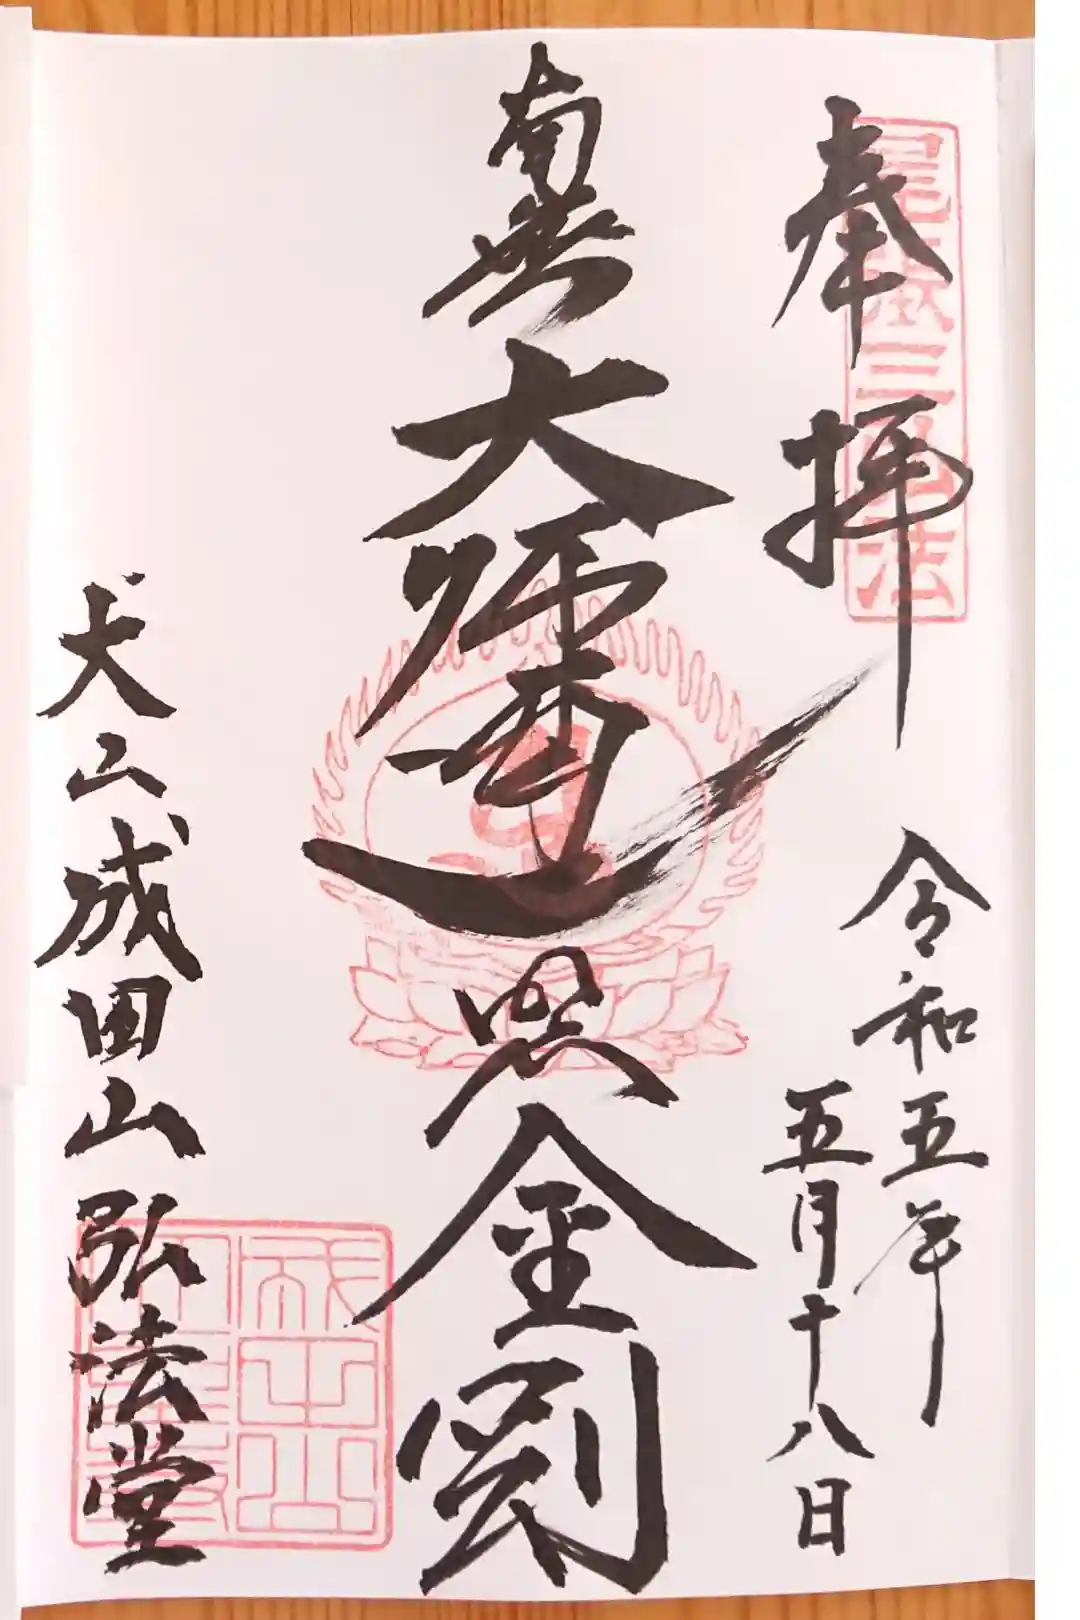 奉拝
令和五年
五月十八日
南無大師遍照金剛
犬山成田山弘法堂
尾張三弘法